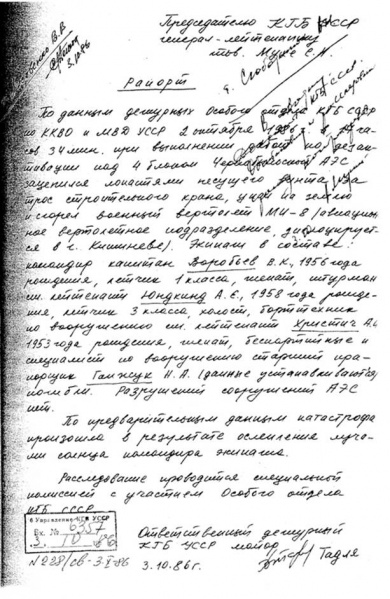 Председателю КГБ УССР
генерал-лейтенанту
тов. Мухе С.Н.
г. 
Рапорт
3.10.86
По данным дежурных Особого отдела КГБ СССР
по ККВО и МВД УССР 2 октября 1986 г. в
34 мин. при выполнении работ по дезак-
тивации над 4 блоком Чернобыльской АЭС
зацепился лопастями несущего винта за
трос строительного крана, упал на землю
и сгорел военный вертолет МИ-8 (авиацион-
ное вертолетное подразделение, дислоцирует-
ся в г. Кишиневе). Экипаж в составе:
командир капитан Воробьев В.К., 1956 года
рождения, летчик 1 класса, женат, штурман
ст. лейтенант Юндкинд А.Е., 1958 года рожде-
ния, летчик 3 класса, холост, бортехник
по вооружению ст. лейтенант Христич А.
1953 года рождения, женат, беспартийные и
специалист по вооружению старший пра-
порщик Ганжук Н.А. (данные устанавливаются)
погибли. Разрушений сооружений АЭС
нет.
По предварительным данным катастрофа
произошла в результате ослепления луча-
ми солнца командира экипажа.
Расследование проводится специальной
комиссией с участием Особого отдела
КГБ СССР.
6 Управление КГБ УССР
Вх. № 6357
3. 10 86
№228/св-3.X-86
Ответственный дежурный
КГБ УССР майор
Гадля
3.10.86г.